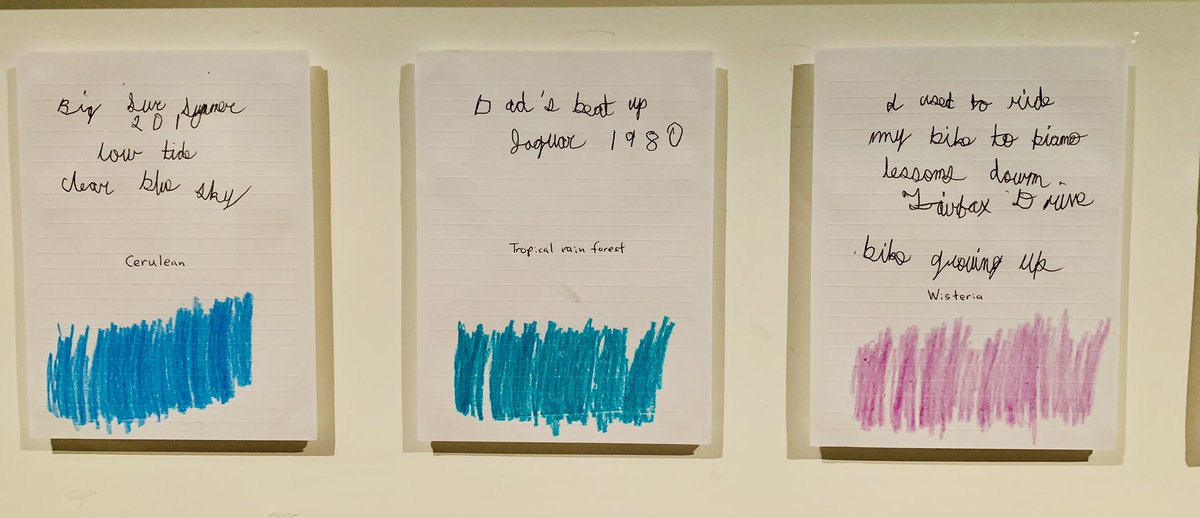 Big Sur Summer
201
low tide
clear blue sky
Cerulean
Dad's beat up
Jaguar 1980
Tropical rain forest
I used to ride
my bike to piano
lessons down
Fairfax Drive
bike growing up
Wisteria